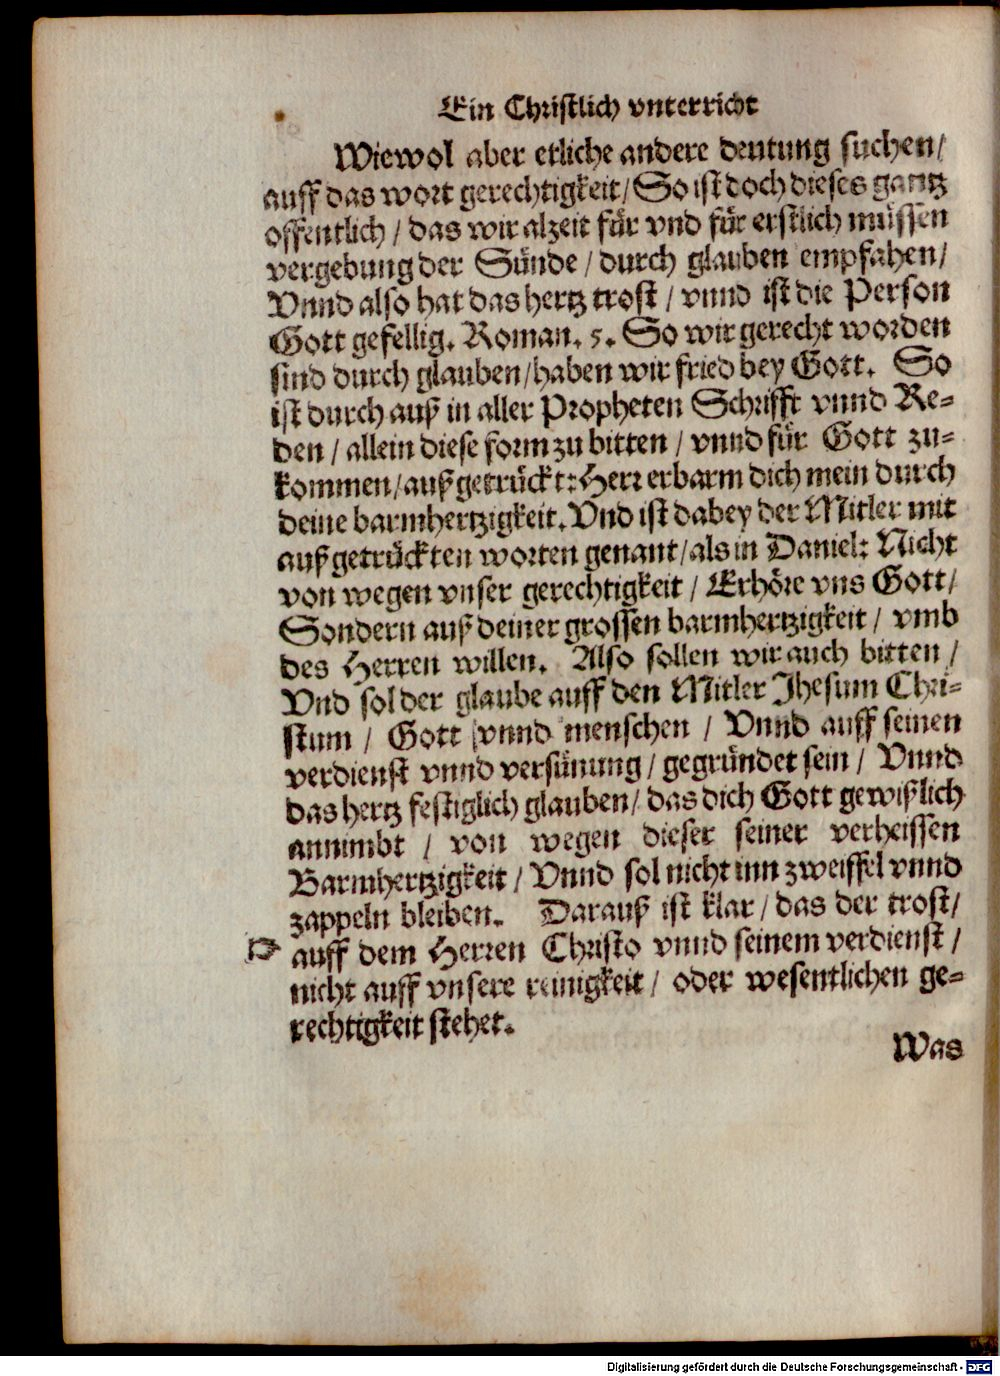 Ein Christlich vnterricht
Wiewol aber etliche andere deutung suchen/
auff das wort gerechtigkeit/ So ist doch dieses gantz
offentlich / das wir alzeit für vnd für erstlich müssen
vergebung der Sünde / durch glauben empfahen/
Vnnd also hat das hertz trost / vnnd ist die Person
Gott gefellig. Roman. 5. So wir gerecht worden
sind durch glauben/haben wir fried bey Gott. So
ist durch auß in aller Propheten Schrifft vnnd Re-
den / allein diese form zu bitten / vnnd für Gott zu-
kommen/außgetrückt: Herr erbarm dich mein durch
deine barmhertzigkeit. Vnd ist dabey der Mitler mit
außgetrückten worten genant/als in Daniel: Nicht
von wegen vnser gerechtigkeit / Erhöre vns Gott/
Sondern auß deiner grossen barmhertzigkeit / vmb
des Herren willen. Also sollen wir auch bitten /
Vnd sol der glaube auff den Mitler Jhesum Chri-
stum / Gott vnnd menschen / Vnnd auff seinen
verdienst vnnd versünung / gegründet sein / Vnnd
das hertz festiglich glauben/ das dich Gott gewißlich
annimbt / von wegen dieser seiner verheissen
Barmhertzigkeit / Vnnd sol nicht inn zweiffel vnnd
zappeln bleiben. Darauß ist klar / das der trost/
☞ auff dem Herren Christo vnnd seinem verdienst /
nicht auff vnsere reinigkeit / oder wesentlichen ge-
rechtigkeit stehet.
Was
Digitalisierung gefördert durch die Deutsche Forschungsgemeinschaft - DFG